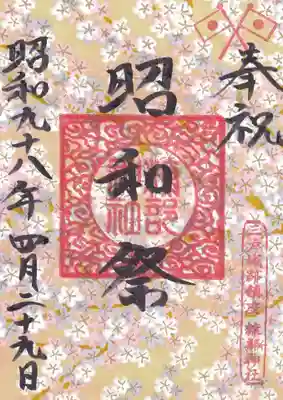 奉祝
昭和祭
昭和九十八年四月二十九日